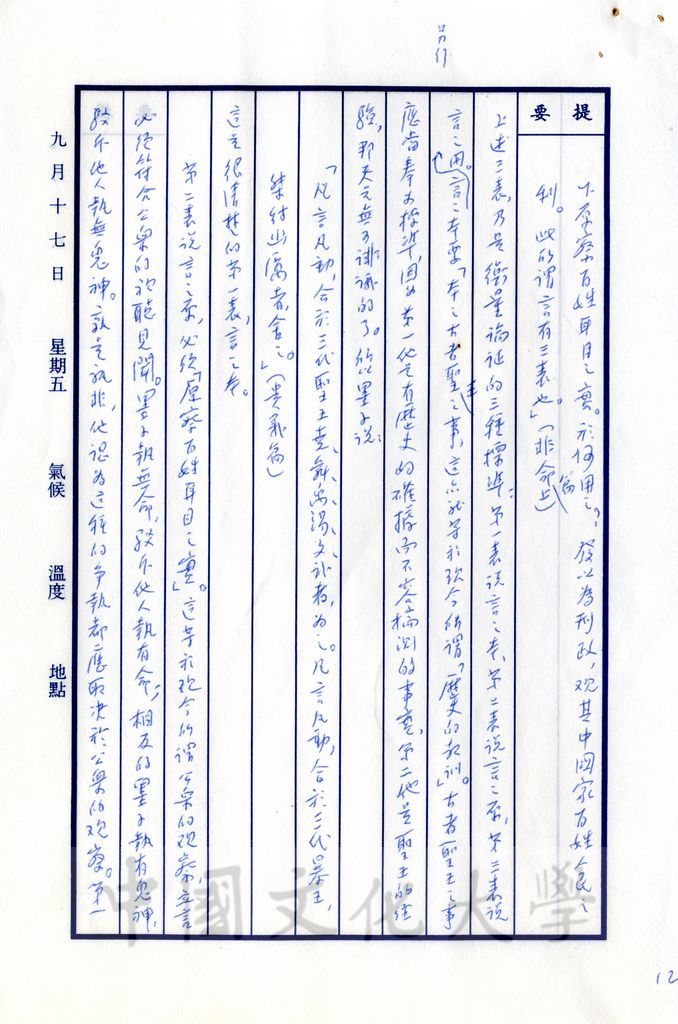 另行
提要
下原察百姓耳目之實。於何用之?發以為刑政,观其中國家百姓人民之
利。此所謂言有三表也」(非命上篇)
上述三表,乃是衡量論証的三種標準:第一表說言之本,第二表說言之原,第三表說
言之用。言之本要「本之古者聖王之事,這点就等於現今所謂「歷史的教訓」。古者聖王之事
應當奉为標準,因为第一他是有歷史的確據而不容揣測的事实,第二他是聖王的经
驗,那天之無可誹议的了。所以墨子说:
「凡言凡動,合於三代聖王堯、舜、禹、湯、文、武者,为之。凡言凡動,合於三代暴王,
桀紂幽厲者,舍之。」(贵義篇)
這是很清楚的第一表,言之本。
第二表說言之原,必須「原察百姓耳目之實」。這等於现今所謂公衆的观察,立言
必須符合公衆的視聽見聞。墨子執無命,駁斥他人執有命;相反的墨子執有鬼神,
駁斥他人執無鬼神。孰是孰非,他認为這種的争執都應取决於公衆的观察。第一
九月十七日 星期五 氣候 溫度 地點
中國文化大學
12